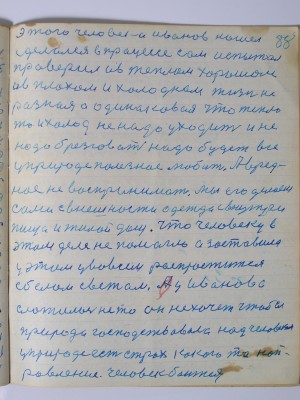 88
Этого человека иванов нашел
сделался в процессе сам испытал
проверил и в теплом хорошом
и в плохом и холодном жизнь не
разная а одинаковая что тепло
то и холод не надо уходить и не
надо брезговать надо будет все
у природе полезное любит. А вред-
ное не воспринимать. Мы его делаем
сами с внешности одежда внутри
пища и жилой дом. Что человеку в
этом деле не помогло а заставило
у этом у во всем распроститься
с белом светом. А у иванова
сложилось не то он не хочет чтобы
природа господствовала над человеком
у природе есть страх какого то нап-
равления. Человек боится